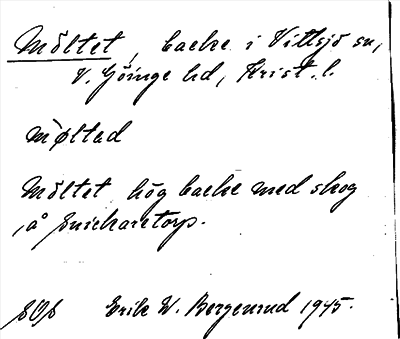 Möltet, backe i Vittsjö sn,
V. Göinge hd, Krist. l.
møltad
Möltet hög backe med skog
å Snickaretorp.
SOS Erik W. Bergenrud 1945.